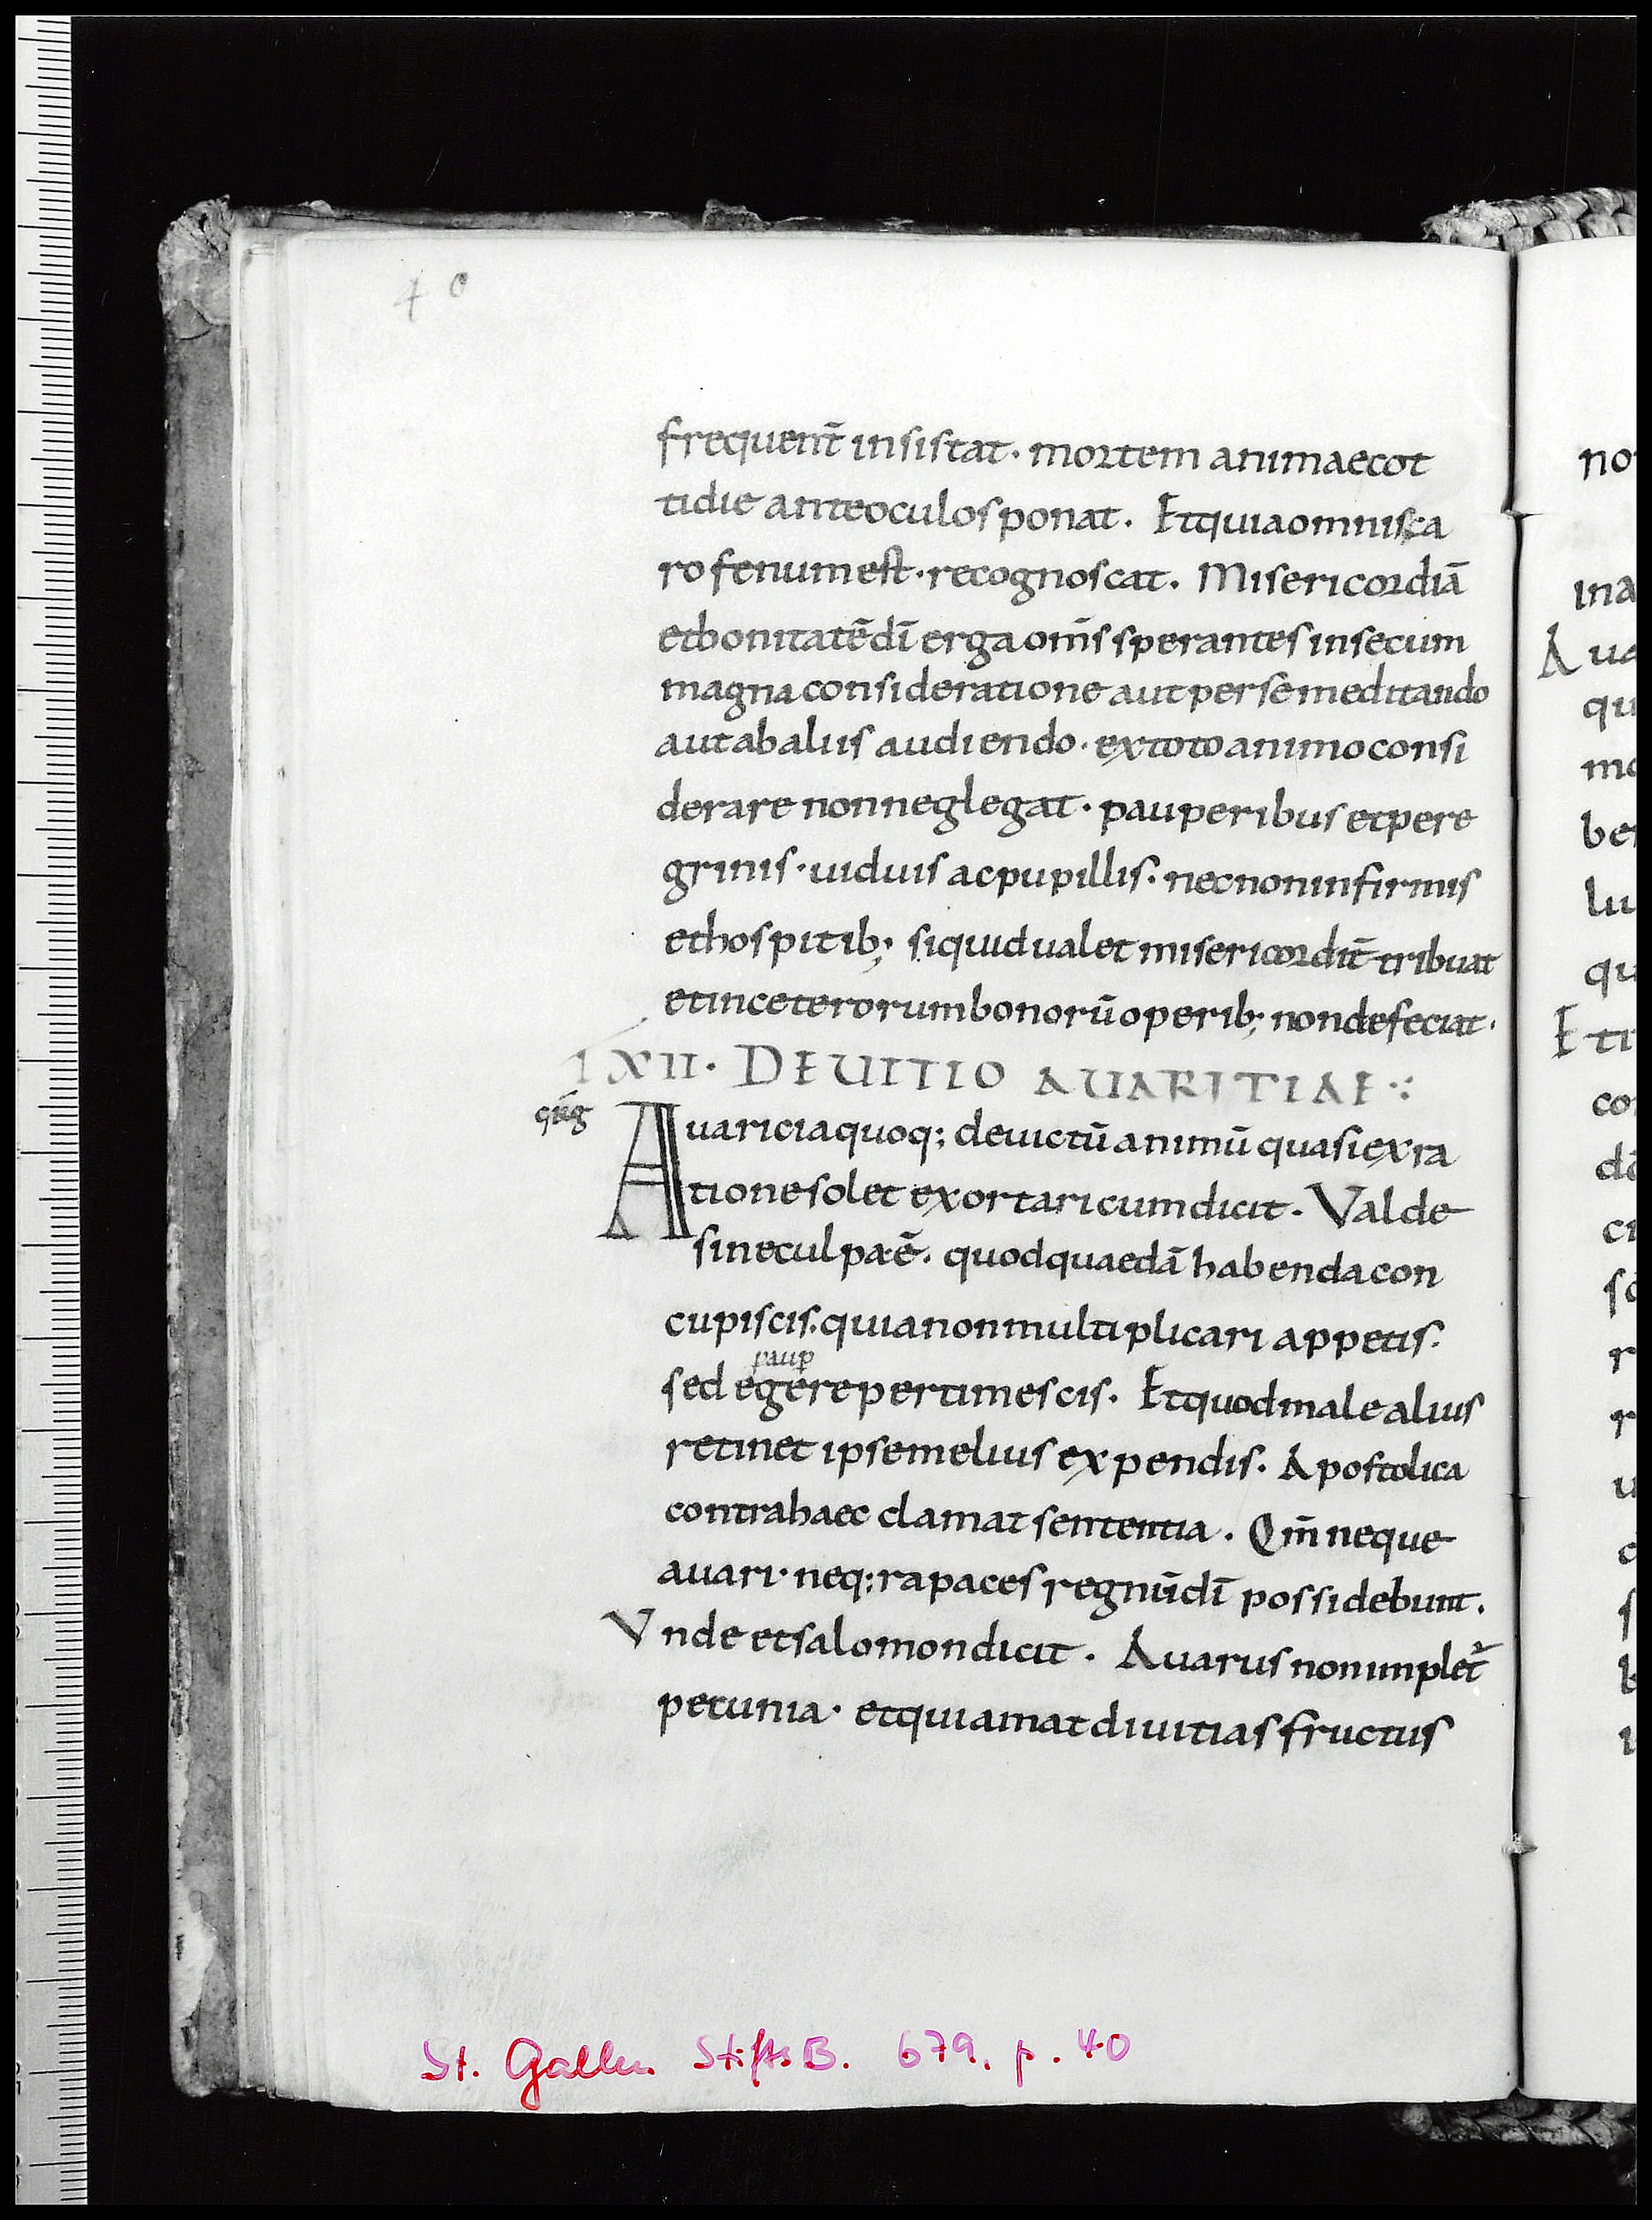 40
frequent̄ insistat· mortem animae cot
tidie ante oculos ponat. Et quia omnis ca
ro fenum est· recognoscat. Misericordiā
et bonitatē dī erga om̄s sperantes in se cum
magna consideratione aut per se meditando
aut ab aliis audiendo· ex toto animo consi
derare non neglegat· pauperibus et pere
grinis· uiduis ac pupillis· nec non infirmis
et hospitib; si quid ualet misericordit̄ tribuat
et in ceterorum bonorū operib; non defeciat·
LXII· DE UITIO AUARITIAE
Auaricia quoq; deuictū animū quasi ex ra
tione solet exortari cum dicit. Valde
sine culpa ē. quod quaedā habenda con
cupiscis. quia non multiplicari appetis.
paup
sed egere pertimescis. Et quod male alius
retinet ipse melius expendis. Apostolica
contra haec clamat sententia. Qm̄ neque
auari· neq; rapaces regnū dī possidebunt.
Vnde et salomon dicit. Auarus non implet̄
pecunia· et qui amat diuitias fructus
St. Gallen StiftsB. 679, p. 40
no
ina
Aua
qu
mo
be
lu
qu
Eti
co